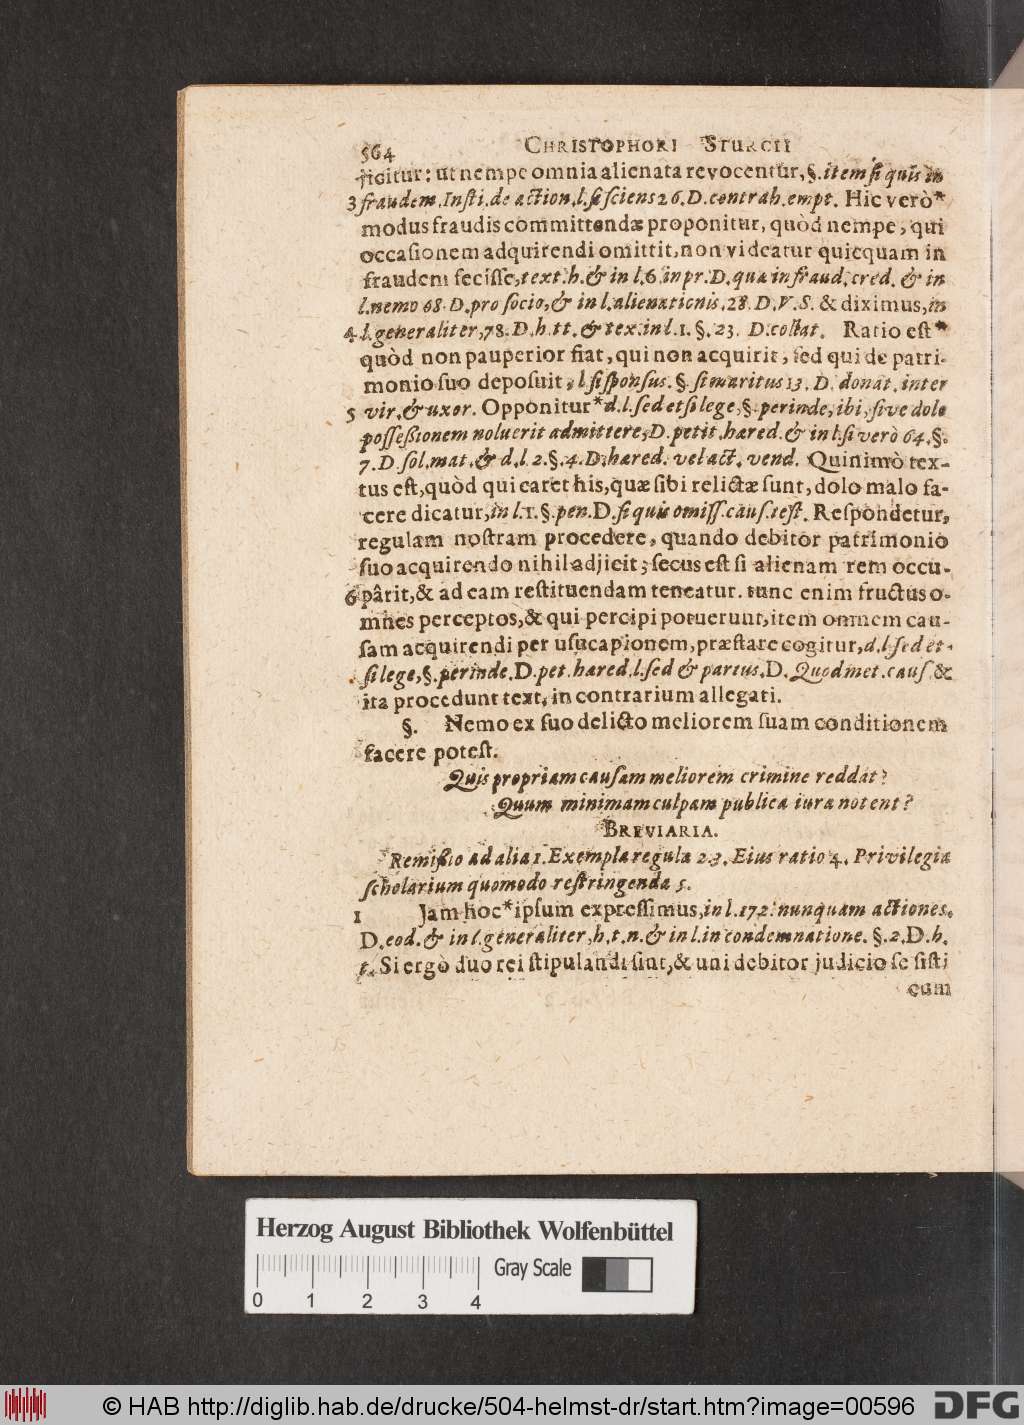 564 CHRISTOPHORI STURCII
jicitur: ut nempe omnia alienata revocentur, §. item si quis in
3 fraudem. Insti. de action. l. si sciens 26. D. contrah. empt. Hic verò*
modus fraudis committendæ proponitur, quòd nempe, qui
occasionem adquirendi omittit, non videatur quicquam in
fraudem fecisse, text. h. & in l. 6. in pr. D. quæ in fraud. cred. & in
l. nemo 68. D. pro socio, & in l. alienationis. 28. D. V. S. & diximus, in
4 l. generaliter, 78. D. h. tt. & tex. in l. 1. §. 23. D. collat. Ratio est*
quòd non pauperior fiat, qui non acquirit, sed qui de patri-
monio suo deposuit, l. si sponsus. §. si maritus 13. D. donat. inter
5 vir. & uxor. Opponitur* d. l. sed etsi lege, §. perinde, ibi, sive dolo
possessionem noluerit admittere, D. petit. hæred. & in l. si verò 64. §.
7. D. sol. mat. & d. l. 2. §. 4. D. hæred. vel act. vend. Quinimò tex-
tus est, quòd qui caret his, quæ sibi relictæ sunt, dolo malo fa-
cere dicatur, in l. 1. §. pen. D. si quis omiss. caus. test. Respondetur,
regulam nostram procedere, quando debitor patrimonio
suo acquirendo nihil adjicit; secus est si alienam rem occu-
6 pârit, & ad eam restituendam teneatur. tunc enim fructus o-
mnes perceptos, & qui percipi potuerunt, item omnem cau-
sam acquirendi per usucapionem, præstare cogitur, d. l. sed et-
si lege, §. perinde. D. pet. hæred. l. sed & partus. D. Quod met. caus. &
ita procedunt text. in contrarium allegati.
§. Nemo ex suo delicto meliorem suam conditionem
facere potest.
Quis propriam causam meliorem crimine reddat?
Quum minimam culpam publica iura notent?
BREVIARIA.
Remissio ad alia 1. Exempla regulæ 2 3. Eius ratio 4. Privilegia
scholarium quomodo restringenda 5.
1 Jam hoc* ipsum expressimus, in l. 172. nunquam actiones.
D. eod. & in l. generaliter, h. t. n. & in l. in condemnatione. §. 2. D. h.
t. Si ergò duo rei stipulandi sint, & uni debitor judicio se sisti
cum
Herzog August Bibliothek Wolfenbüttel
Gray Scale
0 1 2 3 4
© HAB http://diglib.hab.de/drucke/504-helmst-dr/start.htm?image=00596 DFG